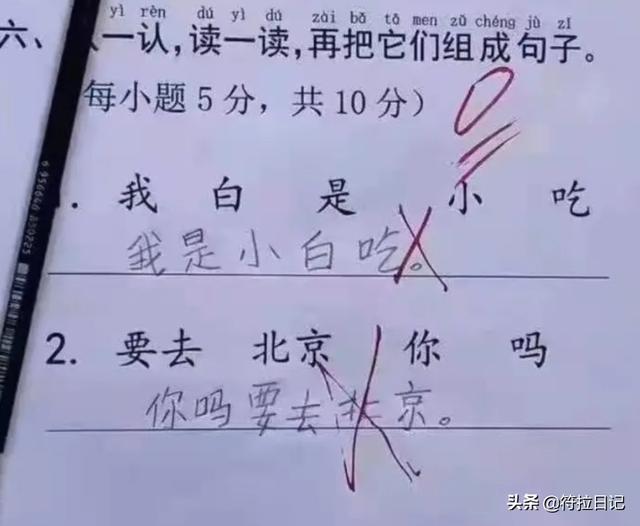 yì rèn dú yì dú zài bǎ tā men zǔ chéng jù zǐ
六、认一认,读一读,再把它们组成句子。
每小题5分，共10分）
0
. 我 白 是 小 吃
我是小白吃。
2. 要去 北京 你 吗
你吗要去北京。
6 956646 350225
头条 @符拉日记